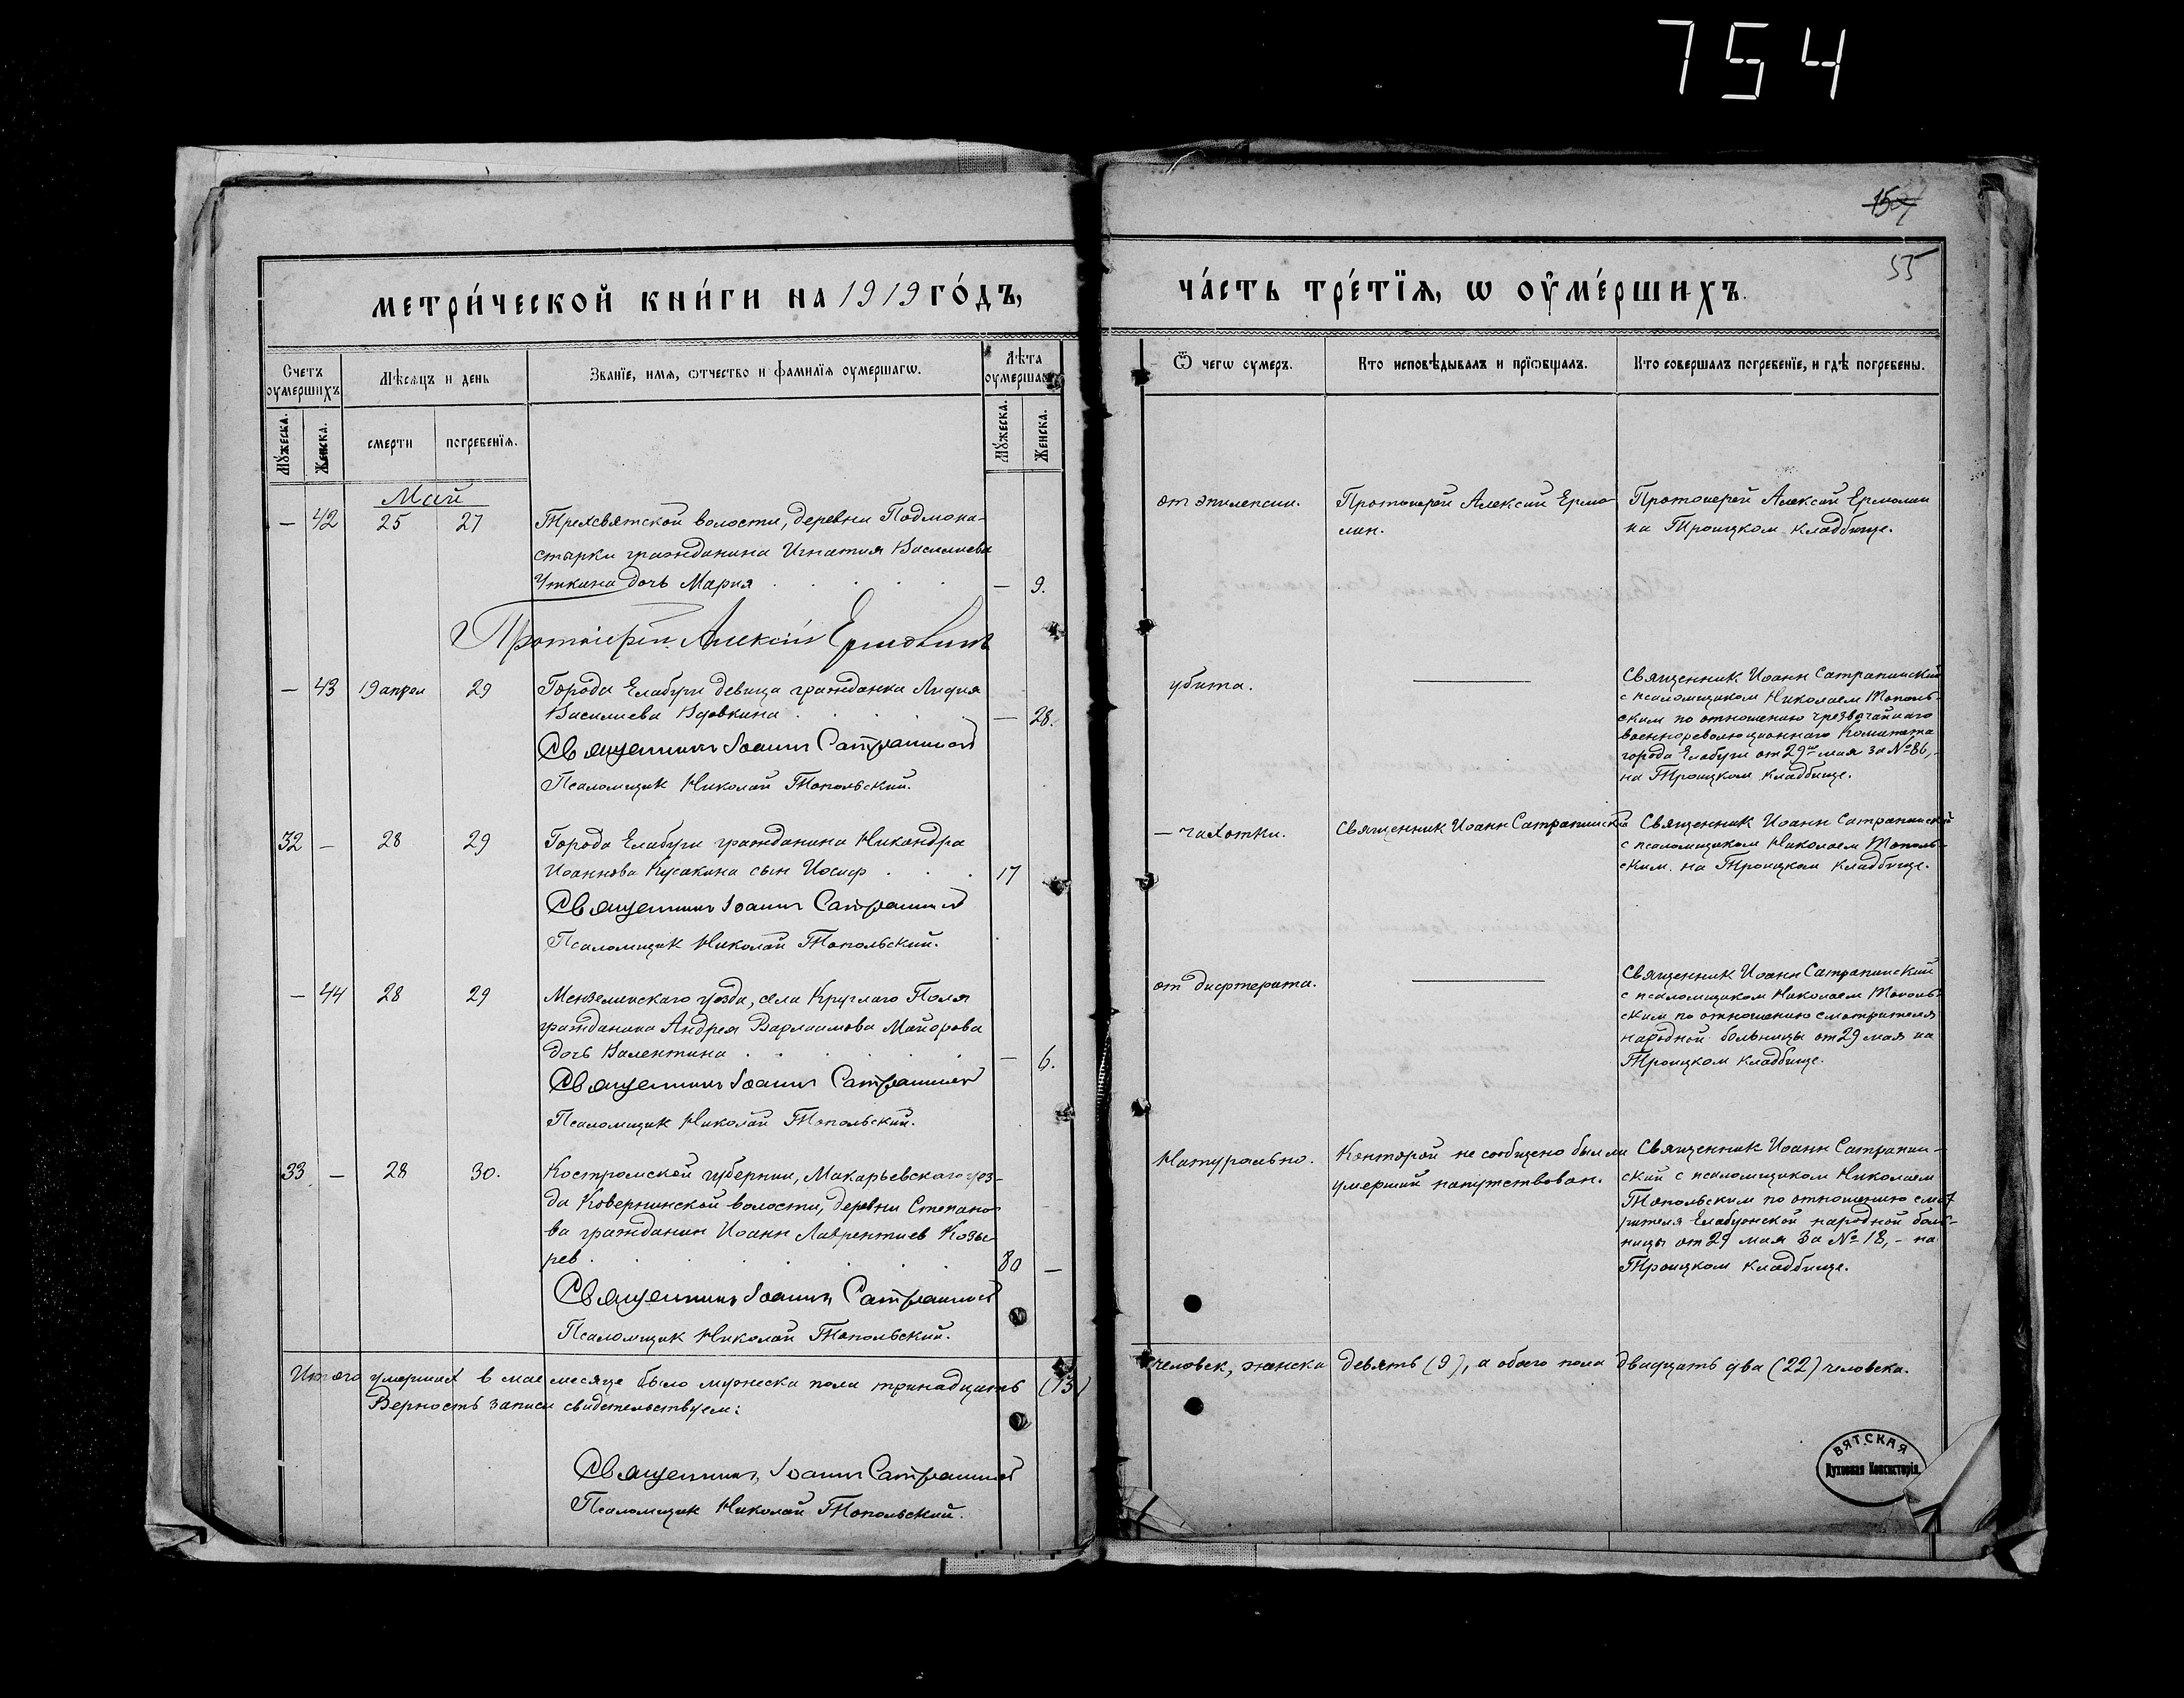 754
157
55
метри́ческой кни́ги на 1919 го́дъ,
ча́сть тре́тїѧ, ѡ оумє́ршихъ.
Счетъ оумершихъ.
Мѣсяцъ и день
Званїе, имя, ѡтчество и фамилїя оумершагѡ.
Лѣта оумершаго
Ѿ чегѡ оумеръ.
Кто исповѣдывалъ и прїѡбщалъ.
Кто совершалъ погребенїе, и гдѣ погребены.
Мꙋжеска.
Женска.
смерти
погребенїя.
Мꙋжеска.
Женска.
Май
— 42 25 27
Трехсвятской волости, деревни Подмона-
стырки гражданина Игнатия Васильева
Уткина дочь Мария . . . . . — 9.
от эпилепсии.
Протоиерей Алексий Ермо-
лин.
Протоиерей Алексий Ермолин
на Троицком кладбище.
Протоіерей Алексій Ермолинъ
— 43 19 апрел 29
Города Елабуги девица гражданка Лидия
Васильева Вдовкина . . . . — 28.
Священникъ Іоаннъ Сатрапинскій
Псаломщик Николай Топольский.
убита.
—
Священник Иоанн Сатрапинский
с псаломщиком Николаем Тополь-
ским по отношению чрезвычайнаго
военнореволюционнаго Комитета
города Елабуги от 29го мая за № 86,-
на Троицком кладбище.
32 — 28 29
Города Елабуги гражданина Никандра
Иоаннова Кусакина сын Иосиф . . . 17
Священникъ Іоаннъ Сатрапинскій
Псаломщик Николай Топольский.
— чахотки.
Священник Иоанн Сатрапинский
Священник Иоанн Сатрапинский
с псаломщиком Николаем Тополь-
ским. на Троицком кладбище.
— 44 28 29
Мензелинскаго уезда, села Круглаго Поля
гражданина Андрея Варлаамова Майорова
дочь Валентина . . . . . — 6.
Священникъ Іоаннъ Сатрапинскій
Псаломщик Николай Топольский.
от дифтерита.
—
Священник Иоанн Сатрапинский
с псаломщиком Николаем Тополь-
ским по отношению смотрителя
народной больницы от 29 мая на
Троицком кладбище.
33 — 28 30.
Костромской губернии, Макарьевскаго уез-
да Ковернинской волости, деревни Степано-
ва гражданин Иоанн Лаврентиев Козы-
рев . . . . . . 80 —
Священникъ Іоаннъ Сатрапинскій
Псаломщик Николай Топольский.
Натурально.
Конторой не сообщено был ли
умерший напутствован.
Священник Иоанн Сатрапин-
ский с псаломщиком Николаем
Топольским по отношению смот
рителя Елабужской народной боль-
ницы от 29 мая за № 18,- на
Троицком кладбище.
Итого умерших в мае месяце было мужеска пола тринадцать (13) человек, женска девять (9), а обоего пола двадцать два (22) человека.
Верность записи свидетельствуем:
Священникъ, Іоаннъ Сатрапинскій
Псаломщик Николай Топольский.
ВЯТСКАЯ
Духовная Консисторія